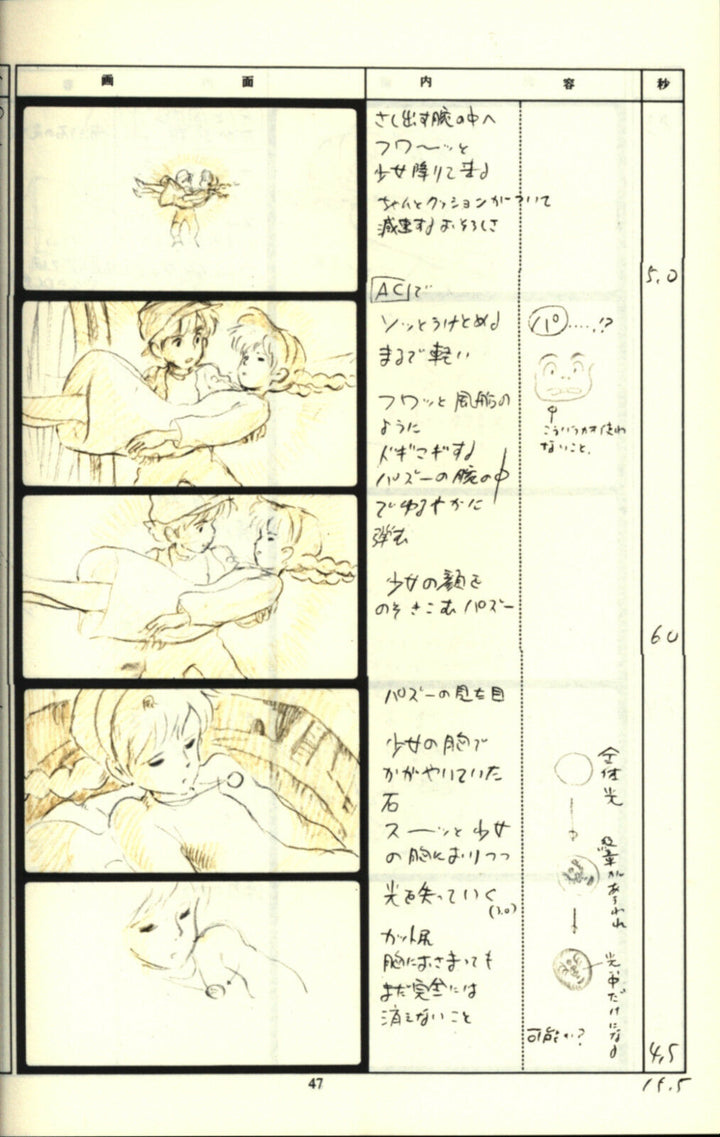 画面
内容
秒
さし出す腕の中へ
フワ〜ッと
少女降りて来る
ちゃんとクッションがついて
減速するおそろしさ
5.0
ACで
ソッとうけとめる
まるで軽い
フワッと風船の
ように
ドギマギする
パズーの腕の中
でゆるやかに
弾む
少女の顔を
のぞきこむパズー
パ……!?
こういうカオ使わ
ないこと.
6.0
パズーの見た目
少女の胸で
かがやいていた
石
スーッと少女
の胸におりつつ
光を失っていく
(3.0)
カット尻
胸におさまっても
まだ完全には
消えないこと
全体光
紋章があらわれ
光、中だけになる
可能か?
4.5
15.5
47